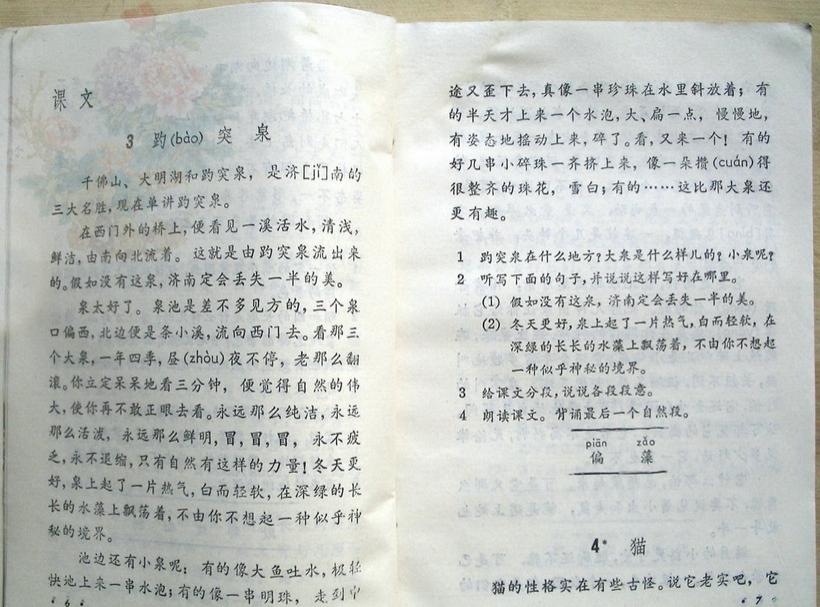 课文
3 趵(bào)突泉
千佛山、大明湖和趵突泉，是济[jǐ]南的
三大名胜，现在单讲趵突泉。
在西门外的桥上，便看见一溪活水，清浅，
鲜洁，由南向北流着。这就是由趵突泉流出来
的。假如没有这泉，济南定会丢失一半的美。
泉太好了。泉池是差不多见方的，三个泉
口偏西，北边便是条小溪，流向西门去。看那三
个大泉，一年四季，昼(zhòu)夜不停，老那么翻
滚。你立定呆呆地看三分钟，便觉得自然的伟
大，使你再不敢正眼去看。永远那么纯洁，永远
那么活泼，永远那么鲜明，冒，冒，冒，永不疲
乏，永不退缩，只有自然有这样的力量！冬天更
好，泉上起了一片热气，白而轻软，在深绿的长
长的水藻上飘荡着，不由你不想起一种似乎神
秘的境界。
池边还有小泉呢：有的像大鱼吐水，极轻
快地上来一串水泡；有的像一串明珠，走到中
·6·
途又歪下去，真像一串珍珠在水里斜放着；有
的半天才上来一个水泡，大、扁一点，慢慢地，
有姿态地摇动上来，碎了。看，又来一个！有的
好几串小碎珠一齐挤上来，像一朵攒(cuán)得
很整齐的珠花，雪白；有的……这比那大泉还
更有趣。
1 趵突泉在什么地方？大泉是什么样儿的？小泉呢？
2 听写下面的句子，并说说这样写好在哪里。
(1) 假如没有这泉，济南定会丢失一半的美。
(2) 冬天更好，泉上起了一片热气，白而轻软，在
深绿的长长的水藻上飘荡着，不由你不想起
一种似乎神秘的境界。
3 给课文分段，说说各段段意。
4 朗读课文。背诵最后一个自然段。
piān zǎo
偏 藻
4* 猫
猫的性格实在有些古怪。说它老实吧，它
·7·